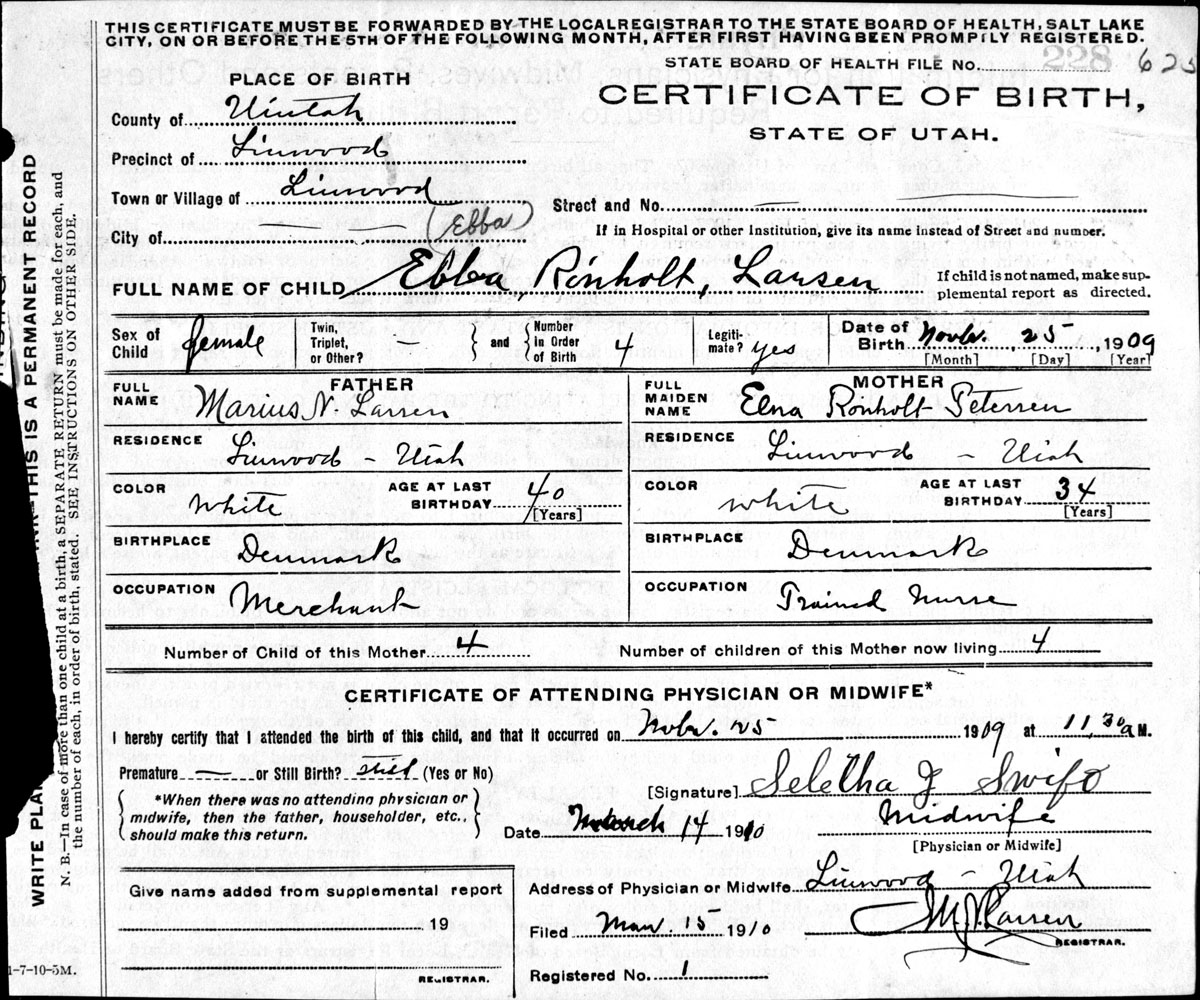 THIS CERTIFICATE MUST BE FORWARDED BY THE LOCAL REGISTRAR TO THE STATE BOARD OF HEALTH, SALT LAKE
CITY, ON OR BEFORE THE 5TH OF THE FOLLOWING MONTH, AFTER FIRST HAVING BEEN PROMPTLY REGISTERED.
STATE BOARD OF HEALTH FILE No. 228 623
PLACE OF BIRTH
CERTIFICATE OF BIRTH,
STATE OF UTAH.
County of Uintah
Precinct of Linwood
Town or Village of Linwood
Street and No. —
(Ebba)
City of —
If in Hospital or other Institution, give its name instead of Street and number.
FULL NAME OF CHILD Ebba, Rönholt, Larsen
If child is not named, make sup-
plemental report as directed.
Sex of Child female
Twin, Triplet, or Other? —
and Number in Order of Birth 4
Legiti-mate? yes
Date of Birth Novbr. 25, 1909
[Month] [Day] [Year]
FATHER
FULL NAME Marius N. Larsen
RESIDENCE Linwood – Utah
COLOR White
AGE AT LAST BIRTHDAY 40
[Years]
BIRTHPLACE Denmark
OCCUPATION Merchant
MOTHER
FULL MAIDEN NAME Elna Rönholt Petersen
RESIDENCE Linwood – Utah
COLOR white
AGE AT LAST BIRTHDAY 34
[Years]
BIRTHPLACE Denmark
OCCUPATION Trained Nurse
Number of Child of this Mother 4
Number of children of this Mother now living 4
CERTIFICATE OF ATTENDING PHYSICIAN OR MIDWIFE*
I hereby certify that I attended the birth of this child, and that it occurred on Novbr. 25 1909 at 11,30 a M.
Premature — or Still Birth? (Yes or No)
*When there was no attending physician or
midwife, then the father, householder, etc.,
should make this return.
[Signature] Seletha J Swift
Date March 14 1910
Midwife
[Physician or Midwife]
Address of Physician or Midwife Linwood – Utah
Filed Mar. 15 1910
M. N. Larsen
REGISTRAR.
Registered No. 1
Give name added from supplemental report
19
REGISTRAR.
1-7-10-5M.
THIS IS A PERMANENT RECORD
WRITE PLA
N. B.—In case of more than one child at a birth, a SEPARATE RETURN must be made for each, and
the number of each, in order of birth, stated. SEE INSTRUCTIONS ON OTHER SIDE.